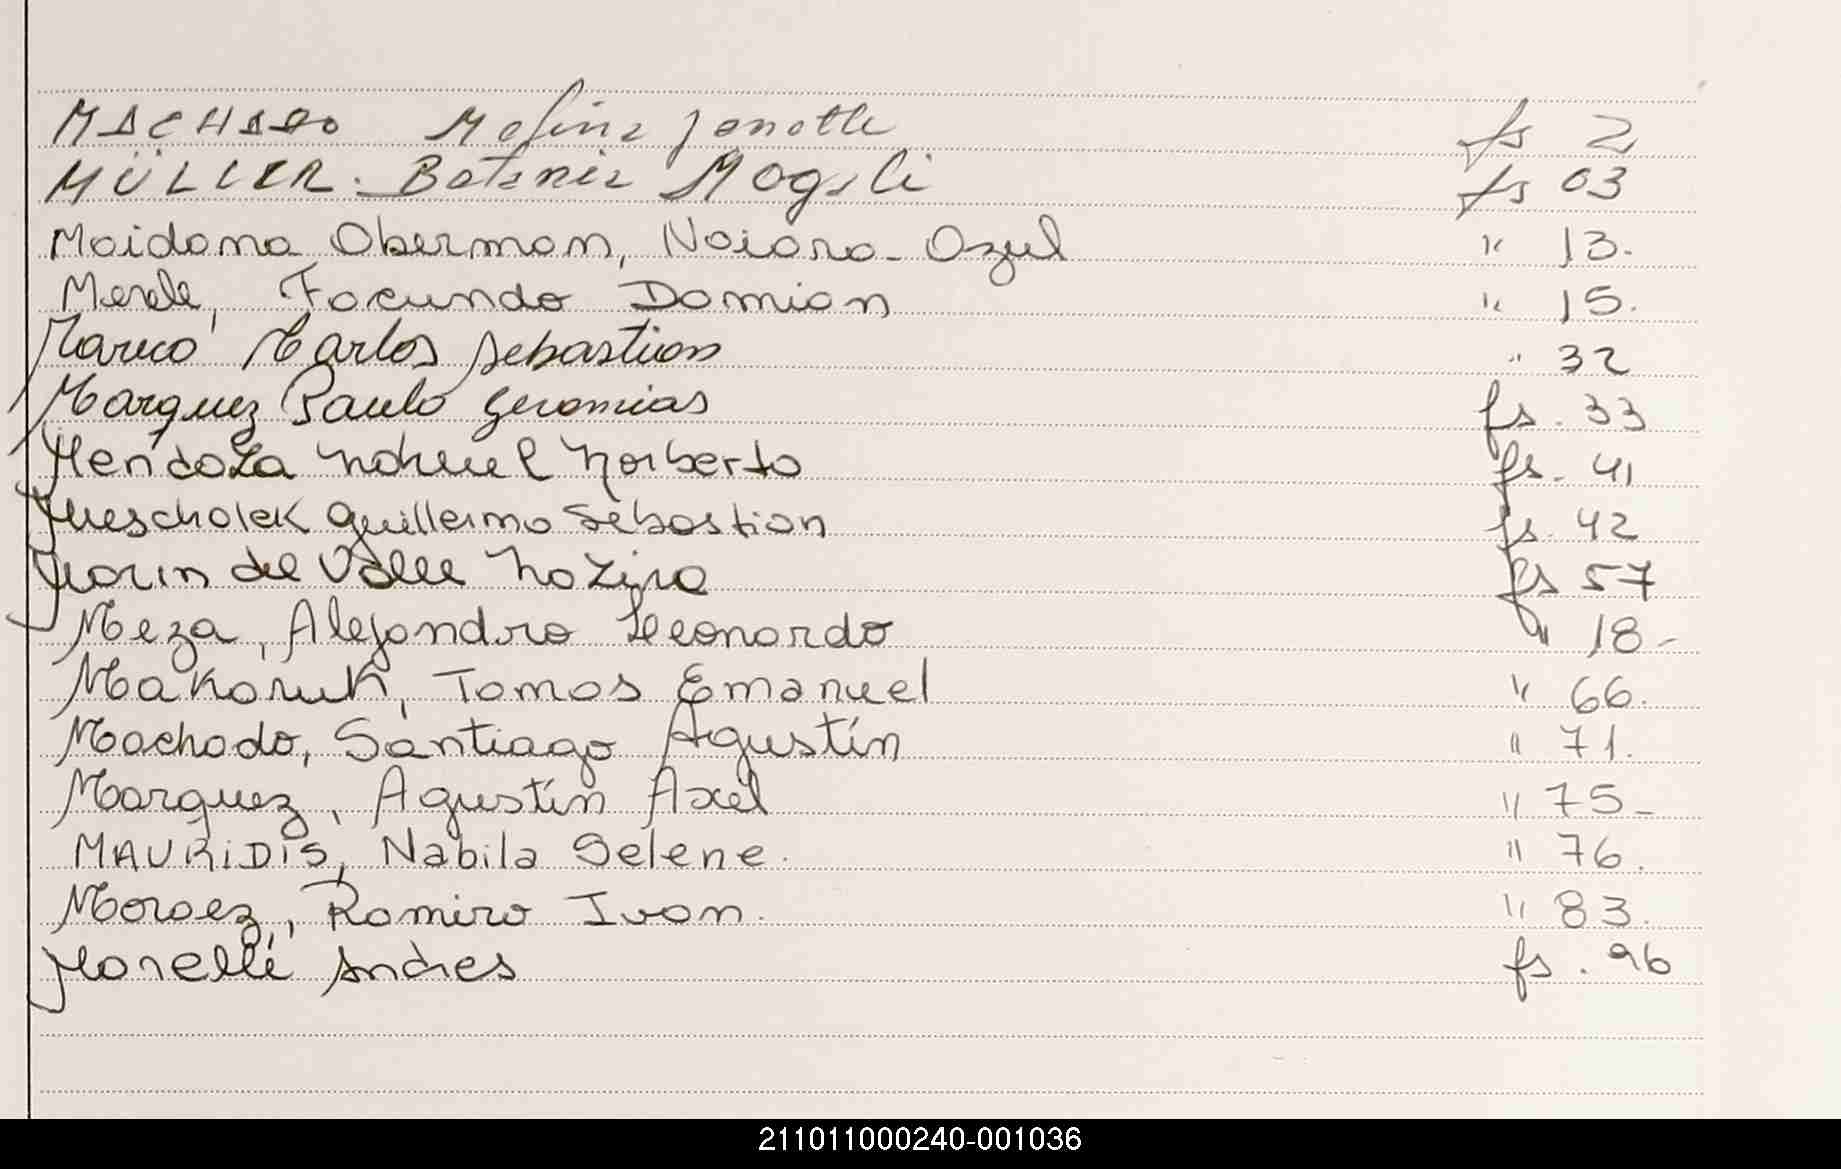 MACHADO Melina Janette fs 2
MÜLLER. Betania Magali fs 03
Maidana Oberman, Naiara Azul " 13.
Merele, Facundo Damian " 15.
Marco Carlos Sebastian " 32
Marquez Paulo Geromias fs. 33
Mendoza Nahuel Norberto fs. 41
Mescholek Guillermo Sebastian fs. 42
Marin del Valle Nazira fs 57
Meza, Alejandro Leonardo " 18-
Makaruk, Tomas Emanuel " 66.
Machado, Santiago Agustín " 71.
Marquez, Agustín Axel " 75-
MAURiDiS, Nabila Selene. " 76.
Moraez, Ramiro Ivan. " 83.
Morelli Andres fs. 96
211011000240-001036